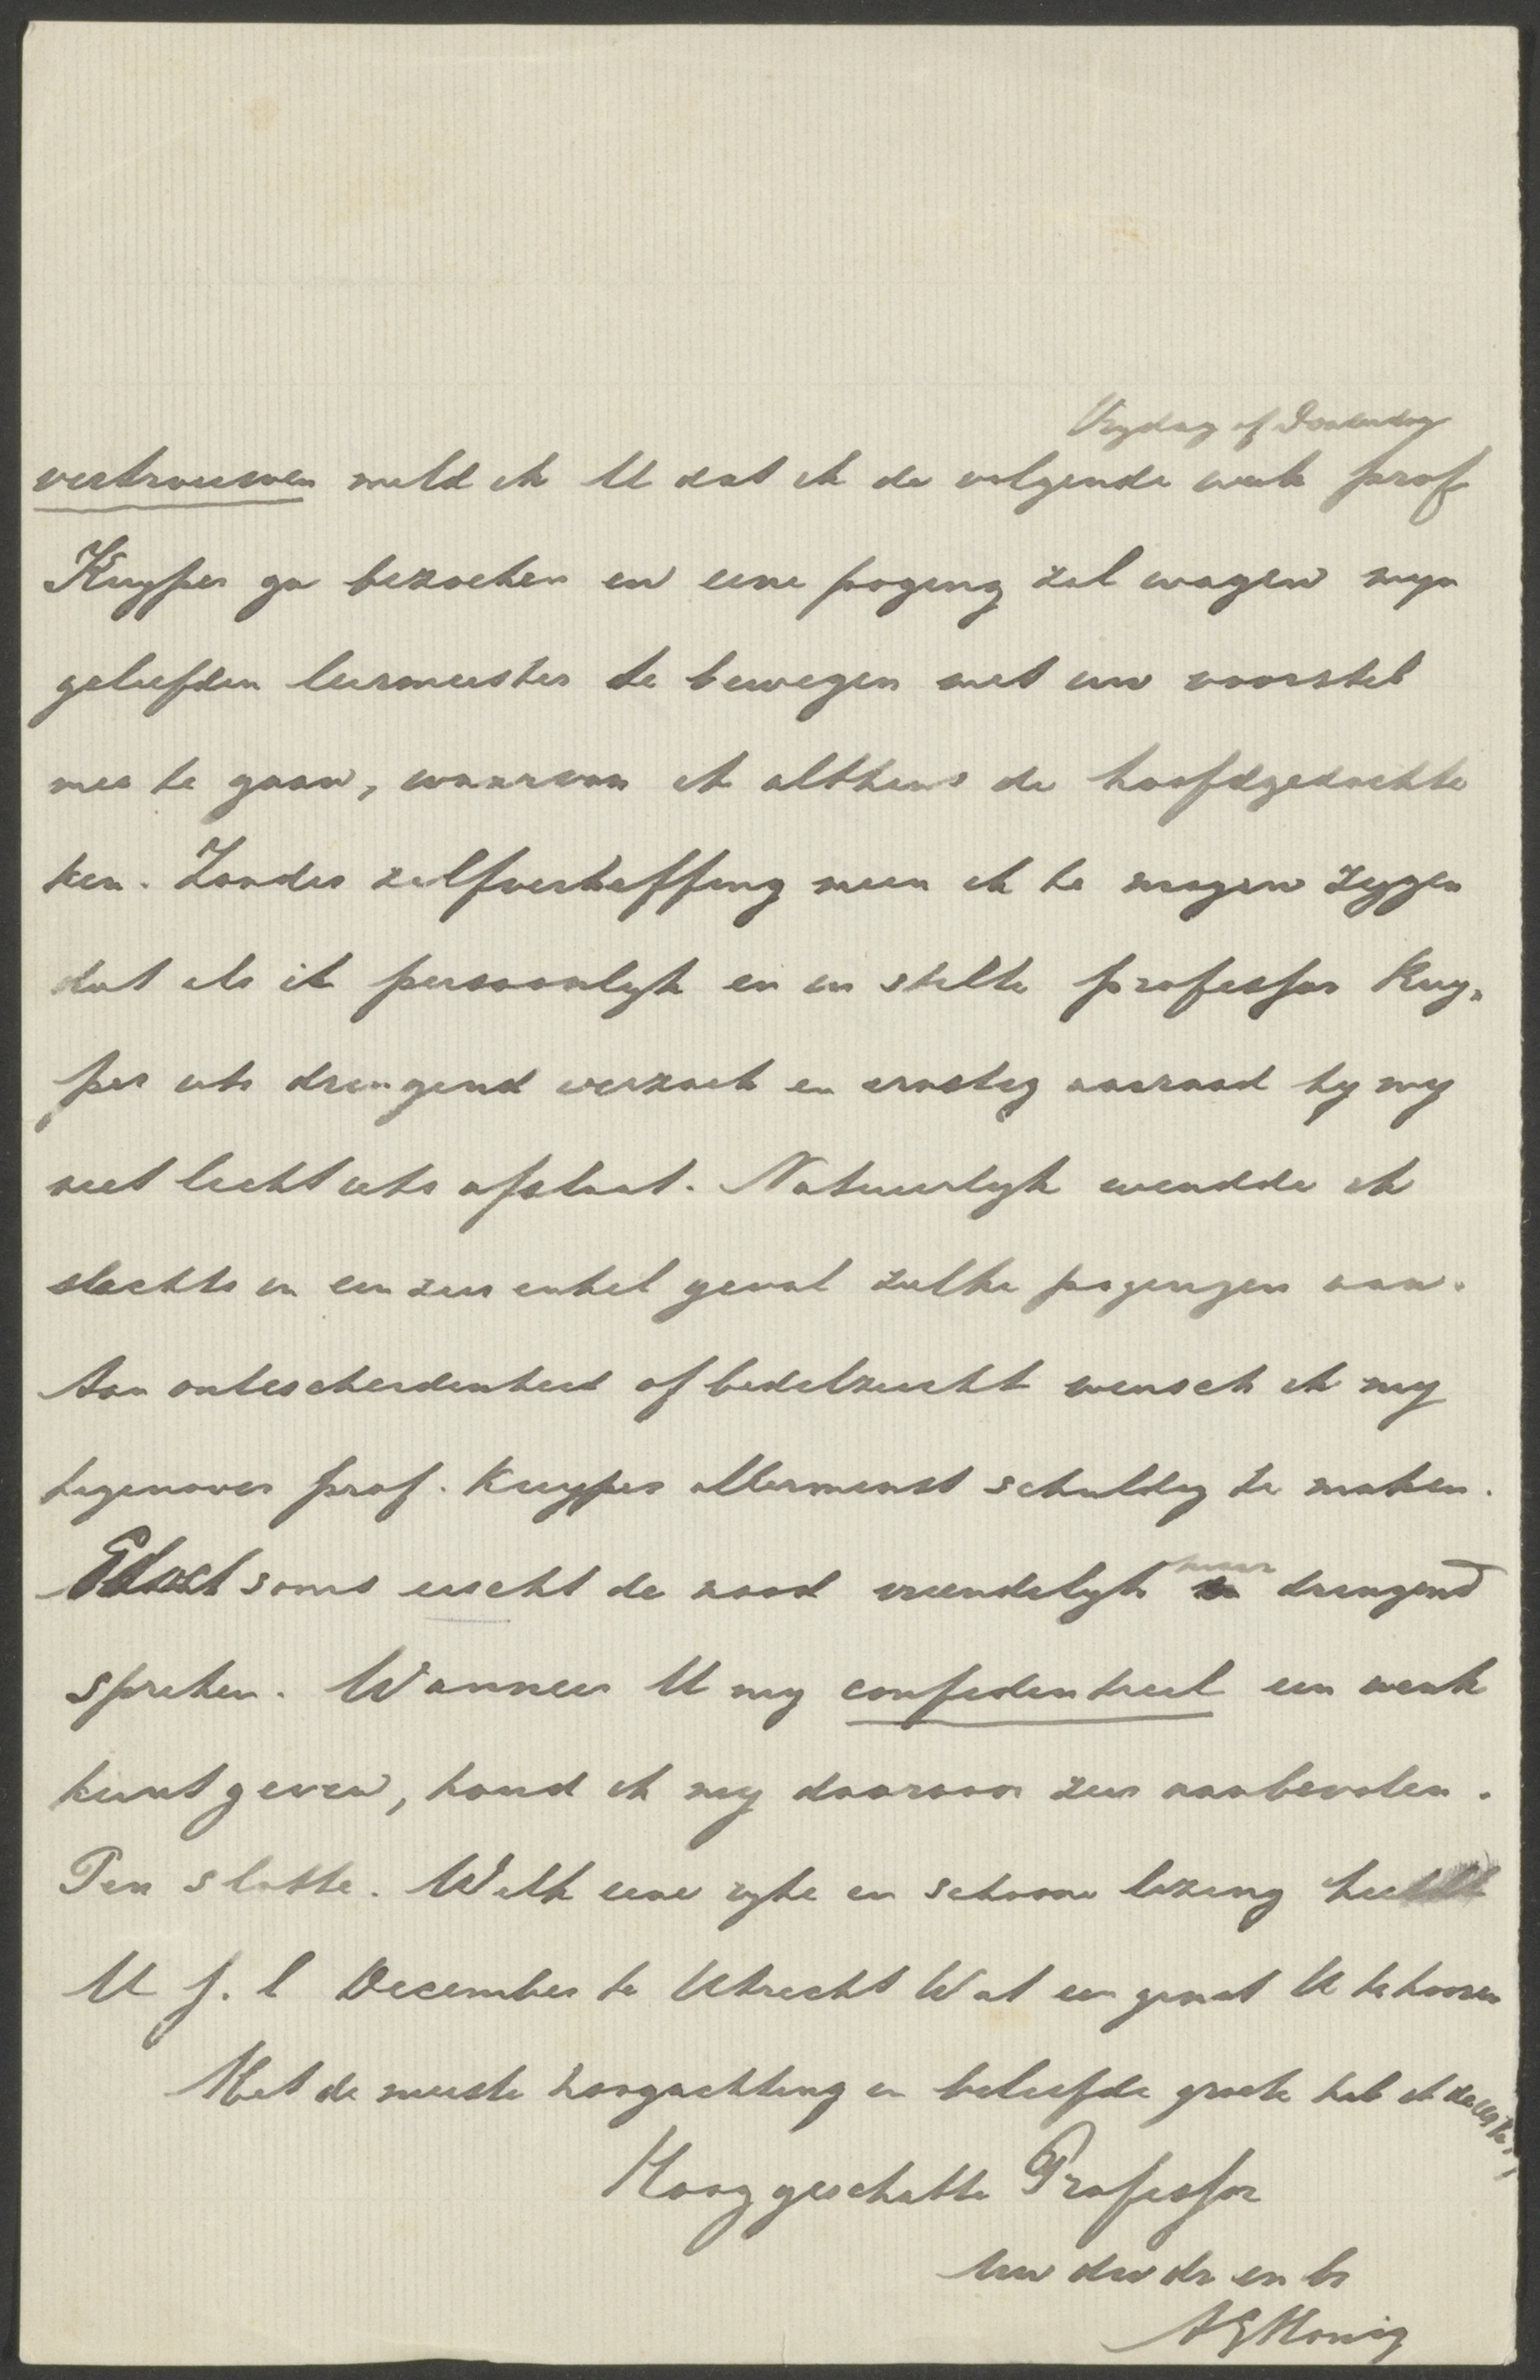 Vrydag of Donderdag
vertrouwen meld ik U dat ik de volgende week prof
Kuyper ga bezoeken en eene poging zal wagen mijn
geliefden leermeester te bewegen met uw voorstel
mee te gaan, waarvan ik althans de hoofdgedachte
ken. Zonder zelfverheffing meen ik te mogen zeggen
dat als ik persoonlyk en in stilte professor Kuy-
per iets dringend verzoek en ernstig aanraad hy my
niet licht iets afslaat. Natuurlyk wendde ik
slechts in een zeer enkel geval zulke pogingen aan.
Aan onbescheidenheid of bedelzucht wensch ik my
tegenover prof. Kuyper allerminst schuldig te maken.
Edoch soms eischt de nood vriendelyk maar dringend
spreken. Wanneer U my confidentieel een wenk
kunt geven, houd ik my daarvoor zeer aanbevolen.
Ten slotte. Welk eene ryke en schoone lezing hield
U j. l December te Utrecht Wat een genot U te hooren
Met de meeste hoogachting en beleefde groete heb ik de eer te
Hooggeschatte Professor
Uw dw dr en br
A G Honig